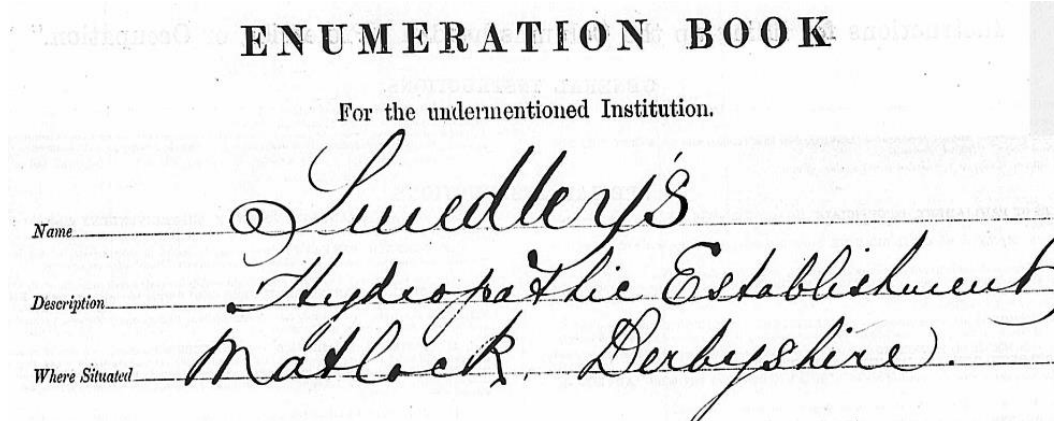 ENUMERATION BOOK
For the undermentioned Institution.
Name Smedley's
Description Hydropathic Establishment
Where Situated Matlock, Derbyshire